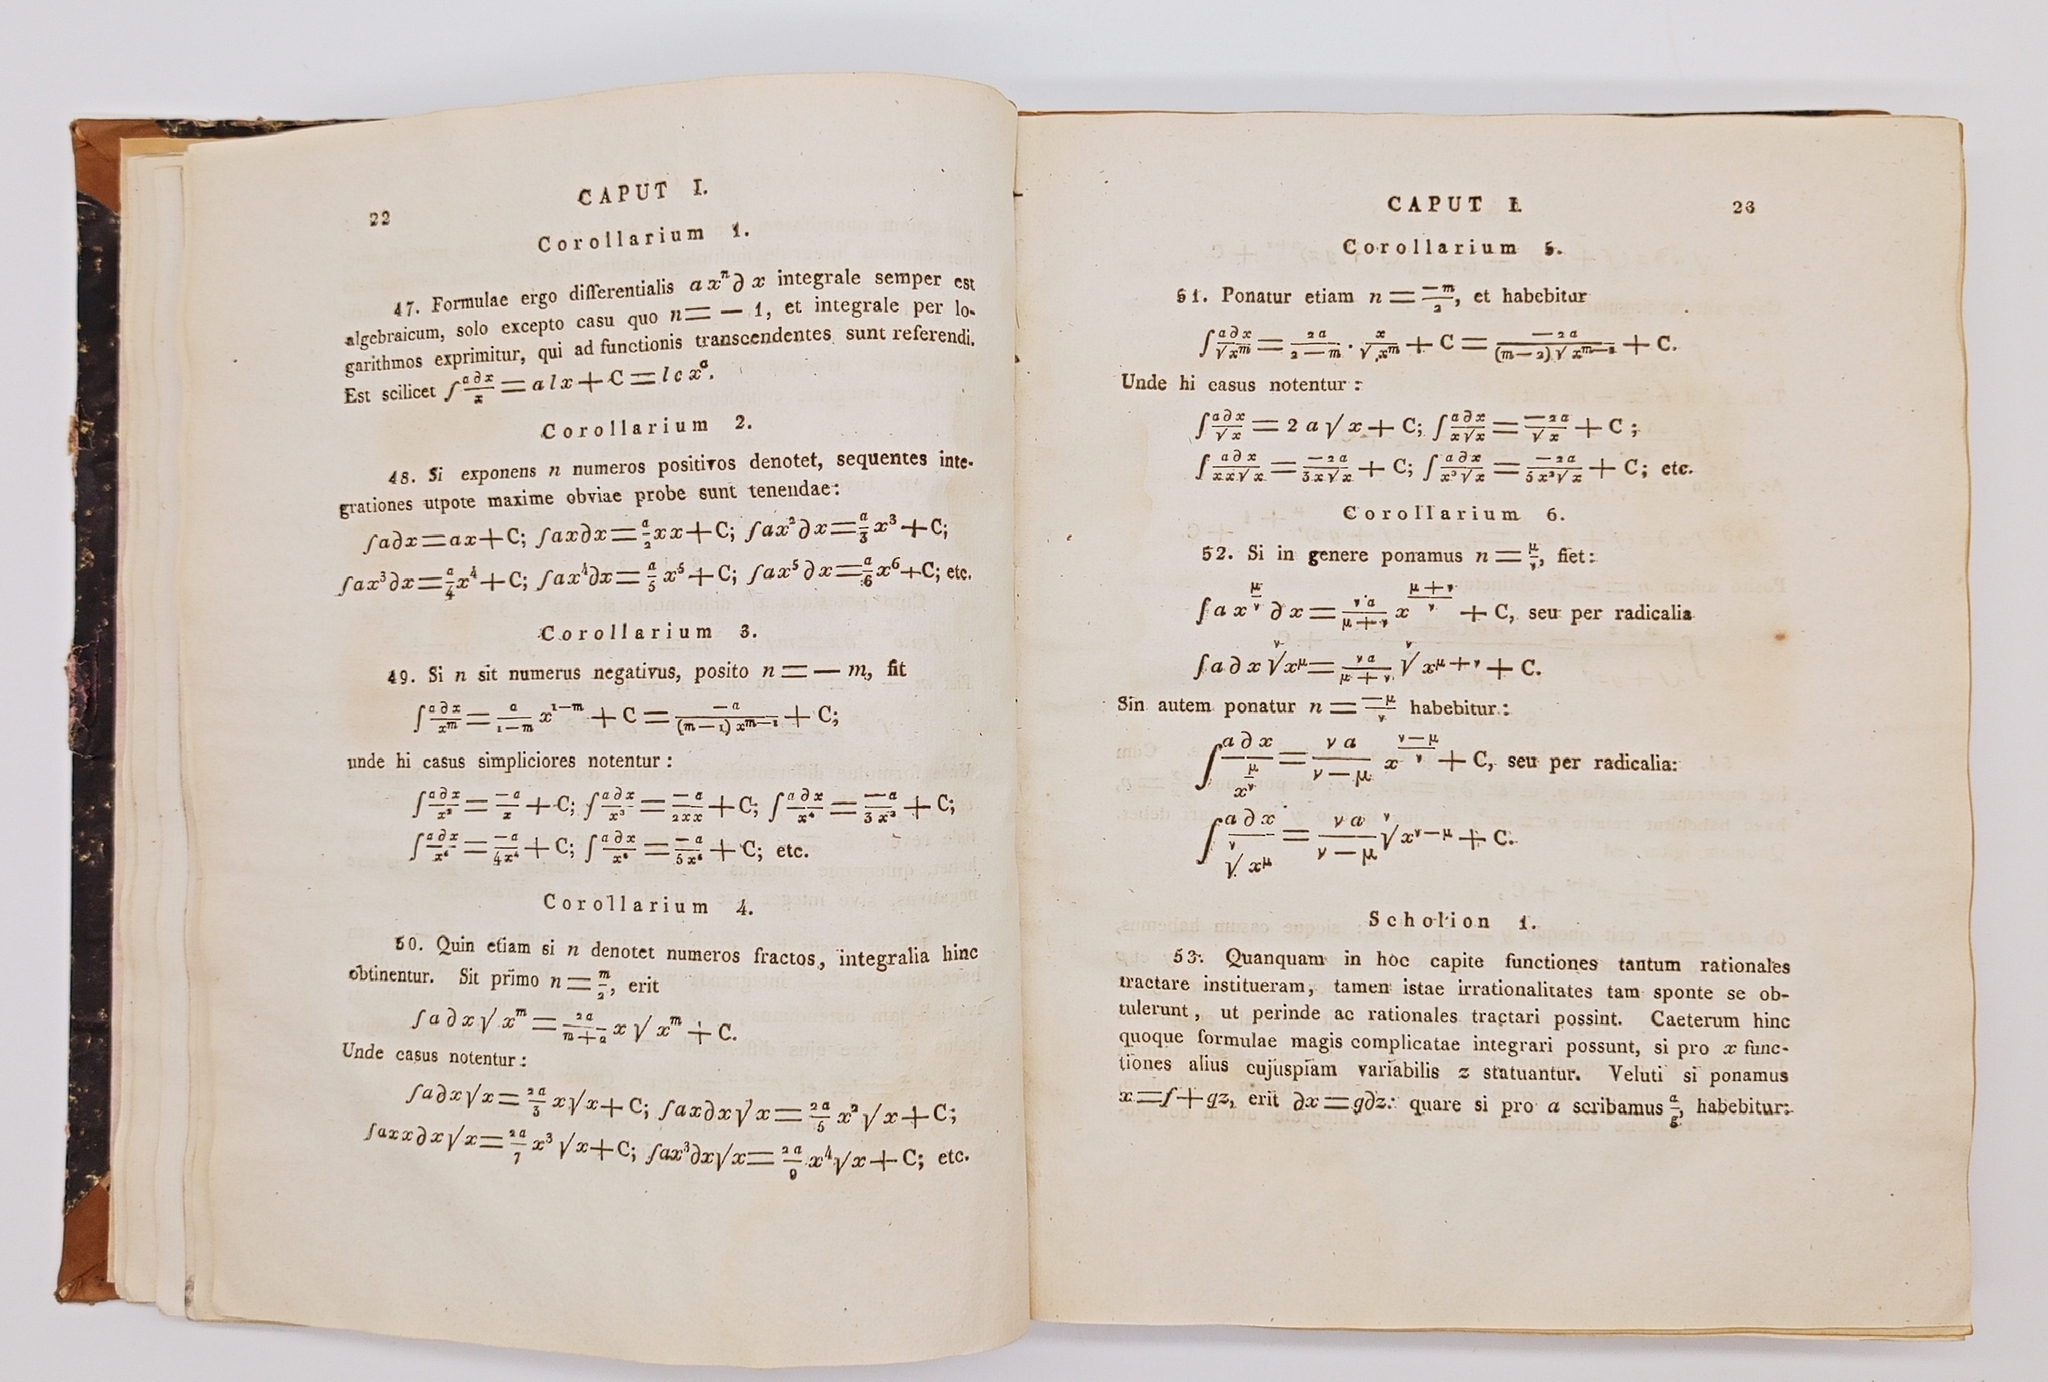 22
CAPUT I.
Corollarium 1.
47. Formulae ergo differentialis a xⁿ ∂ x integrale semper est
algebraicum, solo excepto casu quo n = — 1, et integrale per lo-
garithmos exprimitur, qui ad functionis transcendentes sunt referendi.
Est scilicet ∫ a∂x/x = a l x + C = l c xᵃ.
Corollarium 2.
48. Si exponens n numeros positivos denotet, sequentes inte-
grationes utpote maxime obviae probe sunt tenendae:
∫a∂x = ax + C; ∫ax∂x = a/2 xx + C; ∫ax²∂x = a/3 x³ + C;
∫ax³∂x = a/4 x⁴ + C; ∫ax⁴∂x = a/5 x⁵ + C; ∫ax⁵∂x = a/6 x⁶ + C; etc.
Corollarium 3.
49. Si n sit numerus negativus, posito n = — m, fit
∫ a∂x/xᵐ = a/(1—m) x¹⁻ᵐ + C = —a/((m—1) xᵐ⁻¹) + C;
unde hi casus simpliciores notentur:
∫ a∂x/x² = —a/x + C; ∫ a∂x/x³ = —a/2xx + C; ∫ a∂x/x⁴ = —a/3x³ + C;
∫ a∂x/ = —a/4x⁴ + C; ∫ a∂x/x⁶ = —a/ + C; etc.
Corollarium 4.
50. Quin etiam si n denotet numeros fractos, integralia hinc
obtinentur. Sit primo n = m/2, erit
∫a∂x√xᵐ = 2a/(m+2) x√xᵐ + C.
Unde casus notentur:
∫a∂x√x = 2a/3 x√x + C; ∫ax∂x√x = 2a/5 x²√x + C;
∫axx∂x√x = 2a/7 x³√x + C; ∫ax³∂x√x = 2a/9 x⁴√x + C; etc.
CAPUT I.
23
Corollarium 5.
51. Ponatur etiam n = —m/2, et habebitur
∫ a∂x/√xᵐ = 2a/(2—m) · x/√xᵐ + C = —2a/((m—2)√xᵐ⁻²) + C.
Unde hi casus notentur:
∫ a∂x/√x = 2a√x + C; ∫ a∂x/x√x = —2a/√x + C;
∫ a∂x/xx√x = —2a/3x√x + C; ∫ a∂x/x³√x = —2a/5x²√x + C; etc.
Corollarium 6.
52. Si in genere ponamus n = μ/ν, fiet:
∫a x^(μ/ν) ∂x = νa/(μ+ν) x^((μ+ν)/ν) + C, seu per radicalia
∫a∂x ᵛ√x^μ = νa/(μ+ν) ᵛ√x^(μ+ν) + C.
Sin autem ponatur n = —μ/ν habebitur:
∫ a∂x/x^(μ/ν) = νa/(ν—μ) x^((ν—μ)/ν) + C, seu per radicalia:
∫ a∂x/ᵛ√x^μ = νa/(ν—μ) ᵛ√x^(ν—μ) + C.
Scholion 1.
53. Quanquam in hoc capite functiones tantum rationales
tractare institueram, tamen istae irrationalitates tam sponte se ob-
tulerunt, ut perinde ac rationales tractari possint. Caeterum hinc
quoque formulae magis complicatae integrari possunt, si pro x func-
tiones alius cujuspiam variabilis z statuantur. Veluti si ponamus
x = f + gz, erit ∂x = g∂z: quare si pro a scribamus a/g, habebitur: